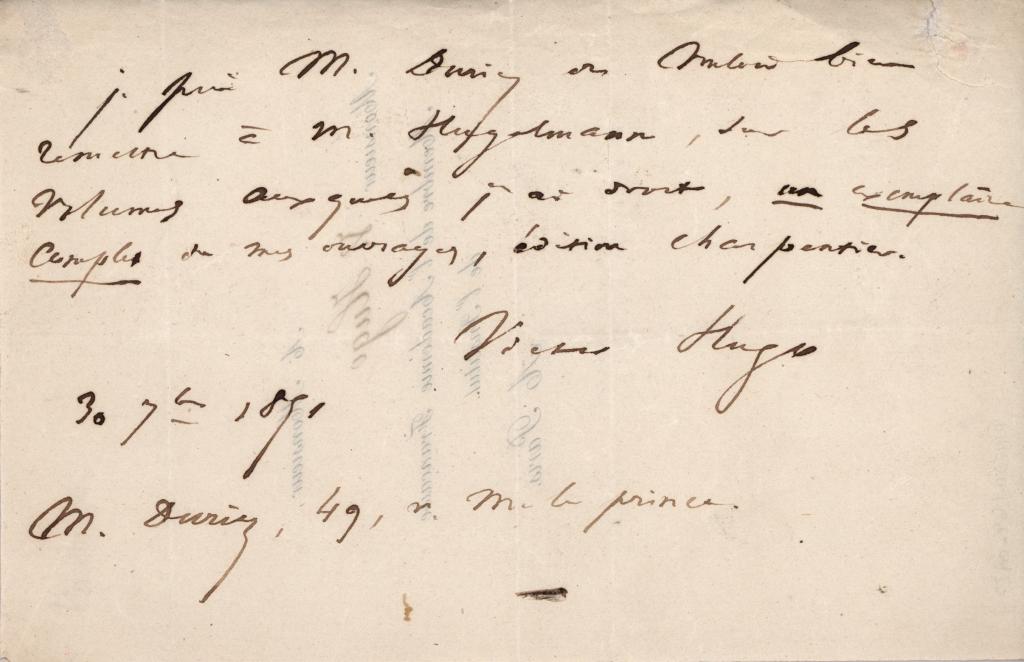 je prie M. Duriez de vouloir bien
remettre à M. Hugelmann, sur les
volumes auxquels j'ai droit, un exemplaire
complet de mes ouvrages, édition charpentier.
Victor Hugo
30 7bre 1851
M. Duriez, 49, r. M. le prince.